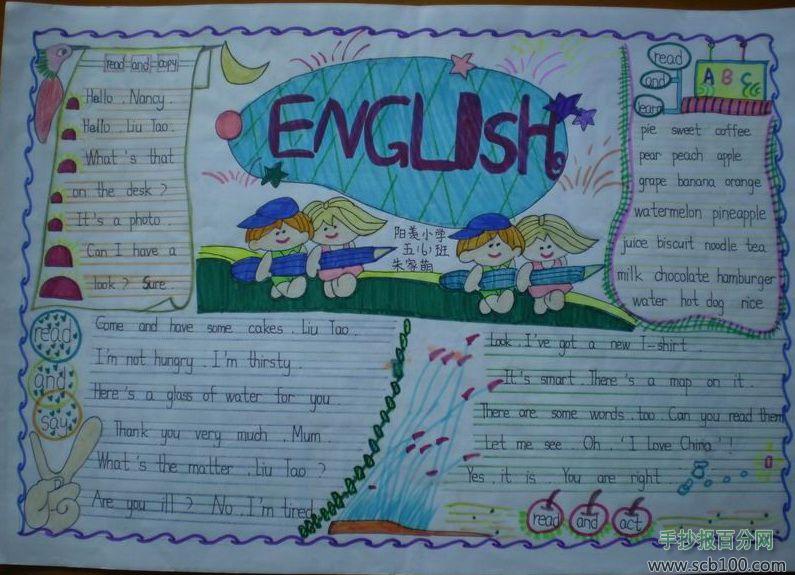 read and copy
Hello . Nancy .
Hello . Liu Tao .
What's that
on the desk ?
It's a photo
Can I have a
look ? Sure .
ENGLISH
阳羡小学
五(6)班
朱家萌
read
and
learn
A B C
pie sweet coffee
pear peach apple
grape banana orange
watermelon pineapple
juice biscuit noodle tea
milk chocolate hamburger
water hot dog rice
read
and
say
Come and have some cakes . Liu Tao .
I'm not hungry . I'm thirsty .
Here's a glass of water for you .
Thank you very much . Mum .
What's the matter . Liu Tao ?
Are you ill ? No . I'm tired
Look . I've got a new T-shirt
It's smart . There's a map on it .
There are some words . too Can you read them
Let me see . Oh . 'I Love China' !
Yes , it is You are right .
read and act
手抄报百分网
www.scb100.com